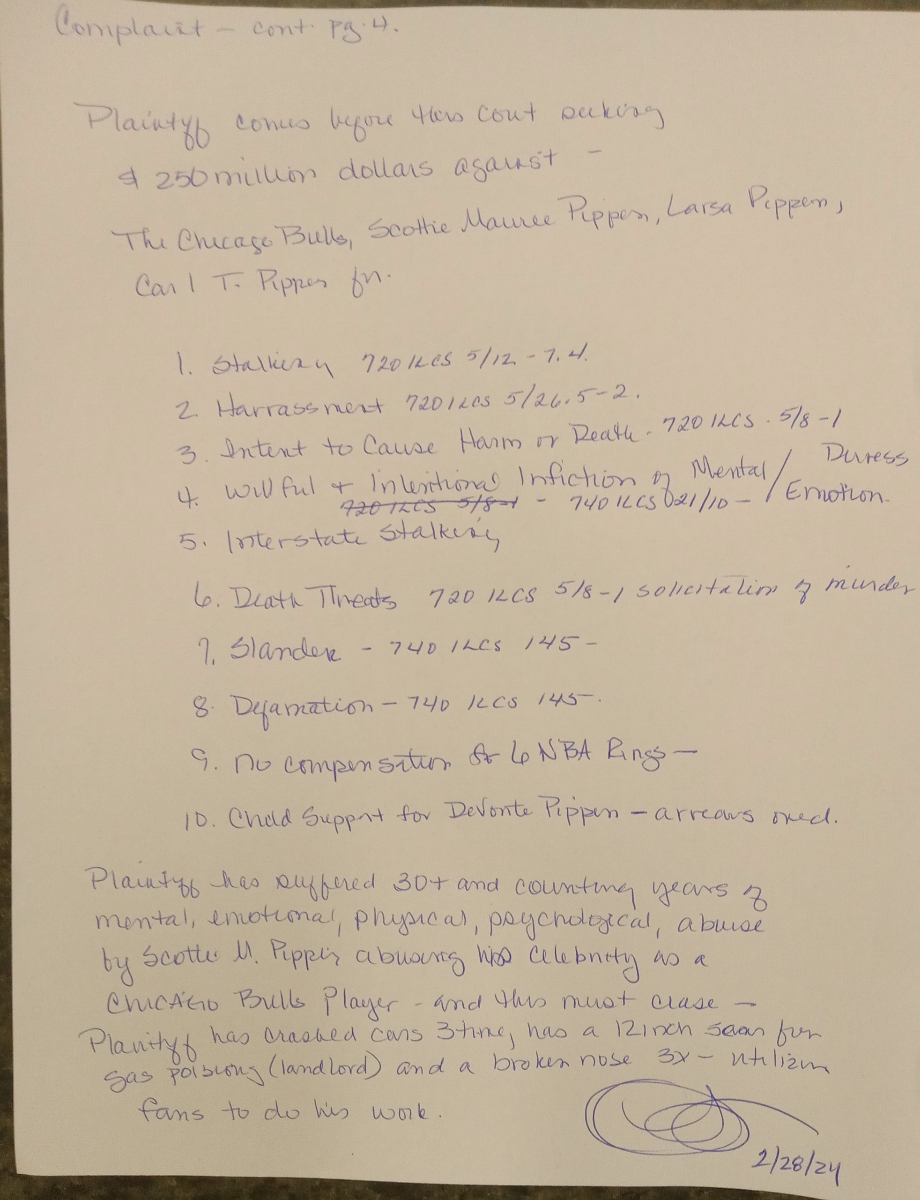 Complaint - cont. pg. 4.
Plaintyff comes before this Court seeking
$ 250 million dollars against -
The Chicago Bulls, Scottie Maurice Pippen, Larsa Pippen,
Carl T. Pippen for.
1. Stalking 720 ILCS 5/12 - 7.4.
2. Harrassment 720 ILCS 5/26.5-2.
3. Intent to Cause Harm or Death. 720 ILCS. 5/8-1
4. Willful + Intentional Infiction of Mental / Duress
720 ILCS 5/8-1 - 740 ILCS 021/10 - / Emotion.
5. Interstate Stalking
6. Death Threats 720 ILCS 5/8-1 solicitation of murder
7. Slander - 740 ILCS 145 -
8. Defamation - 740 ILCS 145.
9. no compensation for 6 NBA Rings -
10. Child Support for DeVonte Pippen - arrears owed.
Plaintyff has suffered 30+ and counting years of
mental, emotional, physical, psychological, abuse
by Scottie M. Pippen abusing his Celebrity as a
CHICAGO Bulls Player - and this must cease -
Plantyff has crashed cars 3time, has a 12 inch scar for
gas poisiong (landlord) and a broken nose 3x - utilizin
fans to do his work.
2/28/24